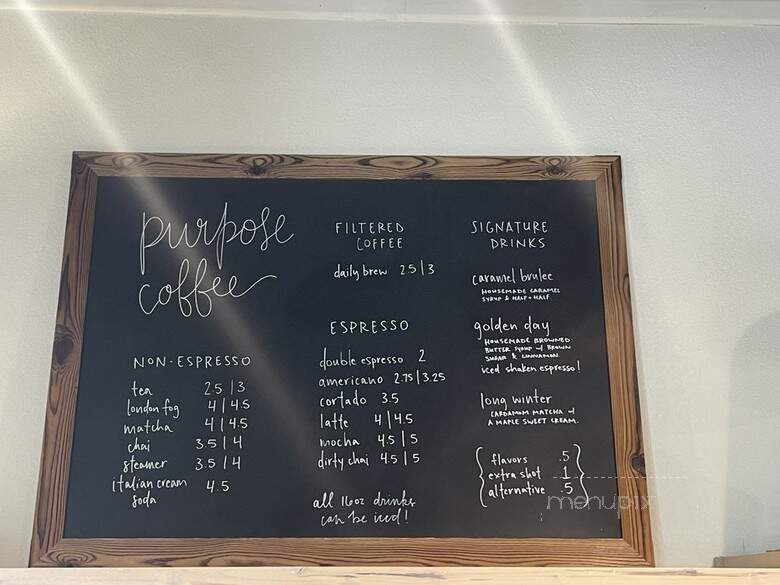 purpose
coffee
NON-ESPRESSO
tea 2.5 | 3
london fog 4 | 4.5
matcha 4 | 4.5
chai 3.5 | 4
steamer 3.5 | 4
italian cream
soda 4.5
FILTERED
COFFEE
daily brew 2.5 | 3
ESPRESSO
double espresso 2
americano 2.75 | 3.25
cortado 3.5
latte 4 | 4.5
mocha 4.5 | 5
dirty chai 4.5 | 5
all 16oz drinks
can be iced!
SIGNATURE
DRINKS
caramel brulee
HOUSEMADE CARAMEL
SYRUP & HALF + HALF.
golden day
HOUSEMADE BROWNED
BUTTER SYRUP w/ BROWN
SUGAR & CINNAMON.
iced shaken espresso!
long winter
CARDAMOM MATCHA w/
A MAPLE SWEET CREAM.
flavors .5
extra shot 1
alternative .5
menupix